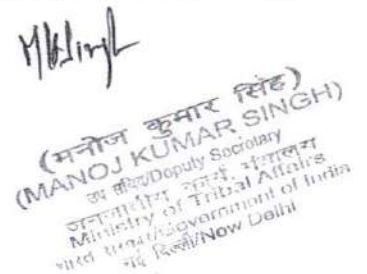 MKSingh
(मनोज कुमार सिंह)
(MANOJ KUMAR SINGH)
उप सचिव/Deputy Secretary
जनजातीय कार्य मंत्रालय
Ministry of Tribal Affairs
भारत सरकार/Government of India
नई दिल्ली/New Delhi